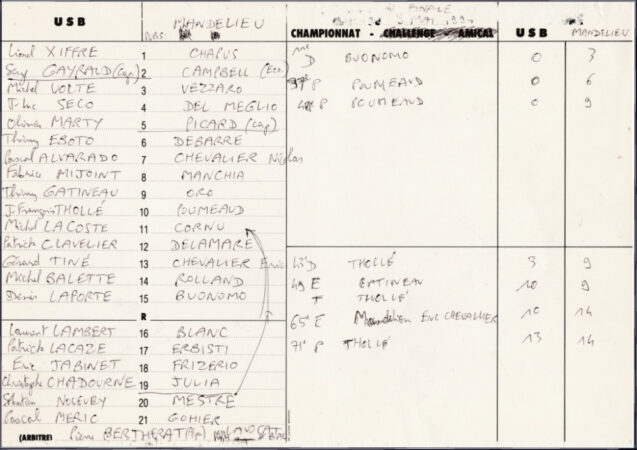 USB MANDELIEU
Lionel XIFFRE 1 CHAPUS
Serg GAYRAUD (Cap) 2 CAMPBELL
Michel VOLTE 3 VEZZARO
J. Luc SECO 4 DEL MEGLIO
Olivier MARTY 5 PICARD (cap)
Thierry EBOTO 6 DEBARRE
Pascal ALVARADO 7 CHEVALIER Nicolas
Fabrice MIJOINT 8 MANCHIA
Thierry GATINEAU 9 ORO
J. François THOLLÉ 10 POUMEAUD
Michel LACOSTE 11 CORNU
Patrick CLAVELIER 12 DELAMARE
Gérard TINÉ 13 CHEVALIER Eric
Michel BALETTE 14 ROLLAND
Denis LAPORTE 15 BUONOMO
R
Laurent LAMBERT 16 BLANC
Patrick LACAZE 17 ERBISTI
Eric JABINET 18 FRIZERIO
Christophe CHADOURNE 19 JULIA
Sébastien 20 MESTRE
Pascal MERIC 21 GOHIER
(ARBITRE) Pierre BERTHERAT
FINALE
CHAMPIONNAT - CHALLENGE - AMICAL USB MANDELIEU
D BUONOMO 0 3
P POUMEAUD 0 6
P POUMEAUD 0 9
43' D THOLLÉ 3 9
49 E GATINEAU 10 9
T THOLLÉ
65' E Mandelieu Eric CHEVALLIER 10 14
71' P THOLLÉ 13 14